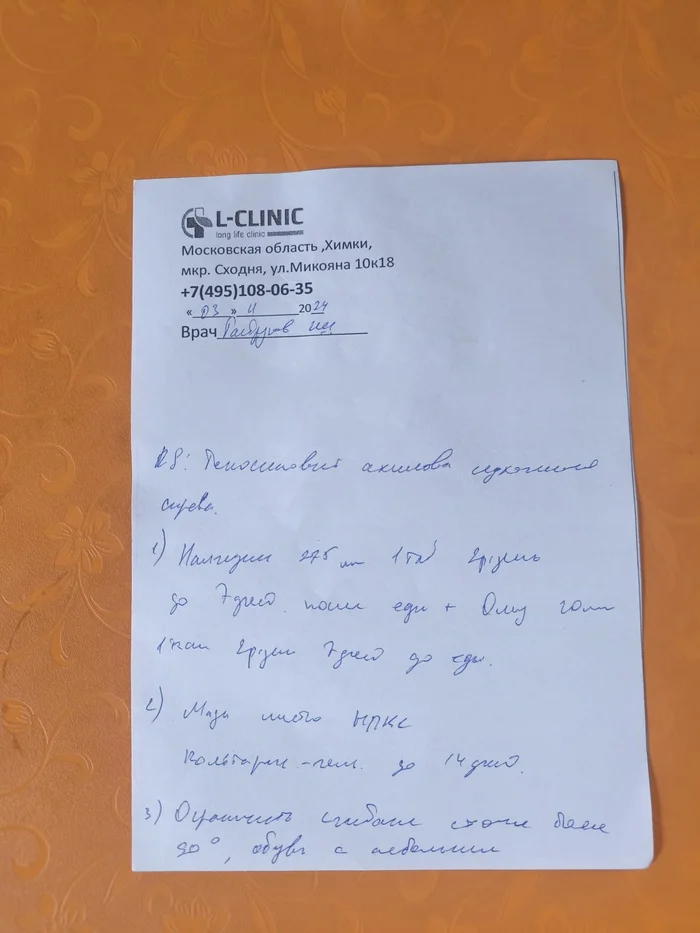 L-CLINIC
long life clinic
Московская область ,Химки,
мкр. Сходня, ул.Микояна 10к18
+7(495)108-06-35
« 03 » 11 2024
Врач
DS: Теносиновит ахиллова сухожилия
слева.
1) Налгезин 275 мг 1 таб 2р/день
до 7 дней после еды + Омез 20мг
1 кап 2р/день 7 дней до еды.
2) Мазь местно НПВС
Вольтарен-гель до 14 дней.
3) Ограничить сгибание стопы более
90°, обувь с небольшим